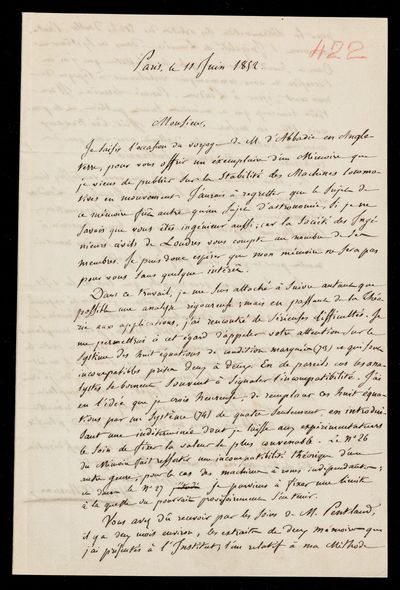 422
Paris, le 11 Juin 1852.
Monsieur,
Je saisis l'occasion du voyage de M. d'Abbadie en Angle-
terre, pour vous offrir un exemplaire d'un Mémoire que
je viens de publier sur la Stabilité des Machines locomo-
tives en mouvement. J'aurais à regretter que le sujet de
ce mémoire fût autre qu'un sujet d'astronomie, si je ne
savais que vous êtes ingénieur aussi, car la Société des Ingé-
nieurs civils de Londres vous compte au nombre de ses
membres. Je puis donc espérer que mon mémoire ne sera pas
pour vous sans quelque intérêt.
Dans ce travail, je me suis attaché à suivre autant que
possible une analyse rigoureuse; mais en passant de la théo-
rie aux applications, j'ai rencontré de sérieuses difficultés. Je
me permettrai à cet égard d'appeler votre attention sur le
système des huit équations de condition marquées (73) et qui sont
incompatibles prises deux à deux. En de pareils cas les ana-
lystes se bornent souvent à signaler l'incompatibilité. J'ai
eu l'idée que je crois heureuse, de remplacer ces huit équa-
tions par un système (74) de quatre seulement, en introdui-
sant une indéterminée dont je laisse aux expérimentateurs
le soin de fixer la valeur la plus convenable. Le N° 26
du Mémoire fait ressortir une incompatibilité théorique d'un
autre genre, pour le cas des machines à roues indépendantes;
et dans le N° 27 je parviens à fixer une limite
à laquelle on pourrait provisoirement s'en tenir.
Vous avez dû recevoir par les soins de M. Pentland,
il y a deux mois environ, les extraits de deux mémoires que
j'ai présentés à l'Institut; l'un relatif à ma Méthode